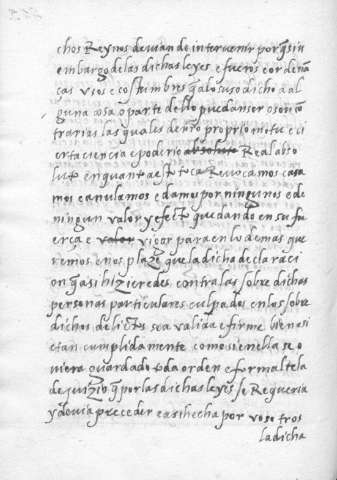 chos Reynos deuian de intervenir por q̃ sin
embargo de las dichas leyes e fueros e ordenan
ças vsos e costumbres q̃ a lo suso dicho o a al
guna cosa o parte dello puedan ser o son con
trarias las quales de nr̃o proprio motu e ci
erta ciencia e poderio absoluto Real abso
luto en quanto a esto toca Reuocamos casa
mos e anulamos e damos por ningunos e de
ningun valor y efecto quedando en su fu
erça e valor vigor para en lo demas que
remos e nos plaze que la dicha declaraci
on q̃ asi hizieredes contra las sobre dichas
personas particulares culpados en los sobre
dichos delictos sea valida e firme bien asi
e tan cumplidamente como si en ella se o
viera guardado toda orden e forma e tela
de juizio q̃ por las dichas leyes se Requeria
y devia preceder e asi hecha por vosotros
la dicha